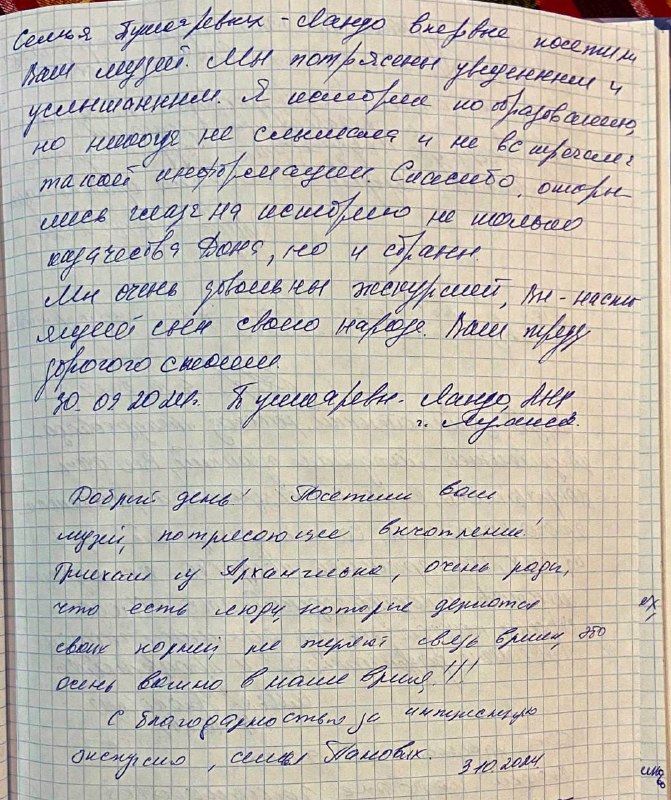 Семья Пушкаревых - Ландо впервые посетили
Ваш музей. Мы потрясены увиденным и
услышанным. Я историк по образованию,
но никогда не слышала и не встречала
такой информации. Спасибо, откры-
лись глаза на историю не только
казачества Дона, но и страны.
Мы очень довольны экскурсией, Вы - насто
ящий сын своего народа. Ваш труд
дорогого стоит.
30.09.2024г. Пушкаревы - Ландо,
г. Луганск.
Добрый день! Посетили ваш
музей, потресающие впичотление!
Приехали из Архангельска, очень рады,
что есть люди, которые держатся
своих корней, не теряют связь времен, это
очень важно в наше время!!!
С благодарностью за интересную
экскурсию, семья Пановых.
3.10.2024